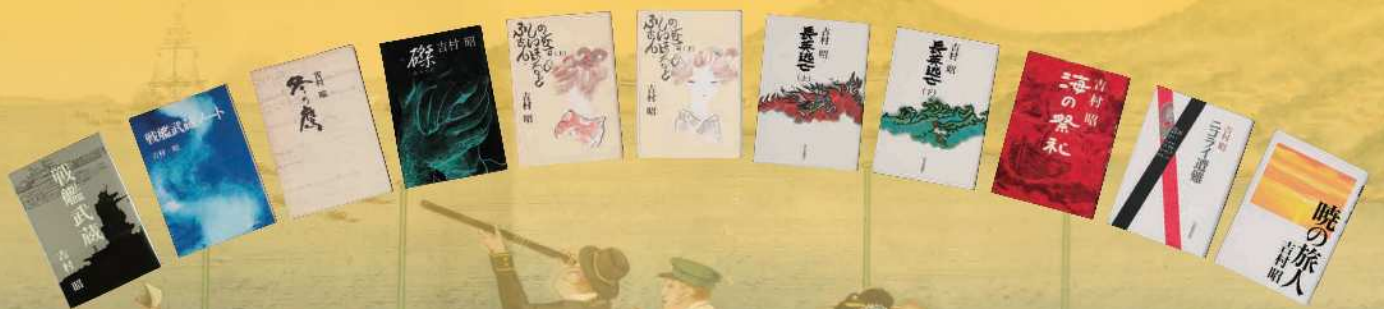 戦艦武蔵
吉村 昭
戦艦武蔵ノート
吉村 昭
冬の鷹
吉村 昭
磔
吉村 昭
ふぉん・しいほるとの娘(上)
吉村 昭
ふぉん・しいほるとの娘(下)
吉村 昭
吉村 昭
長英逃亡
(上)
吉村 昭
長英逃亡
(下)
吉村 昭
海の祭礼
吉村 昭
ニコライ遭難
暁の旅人
吉村 昭